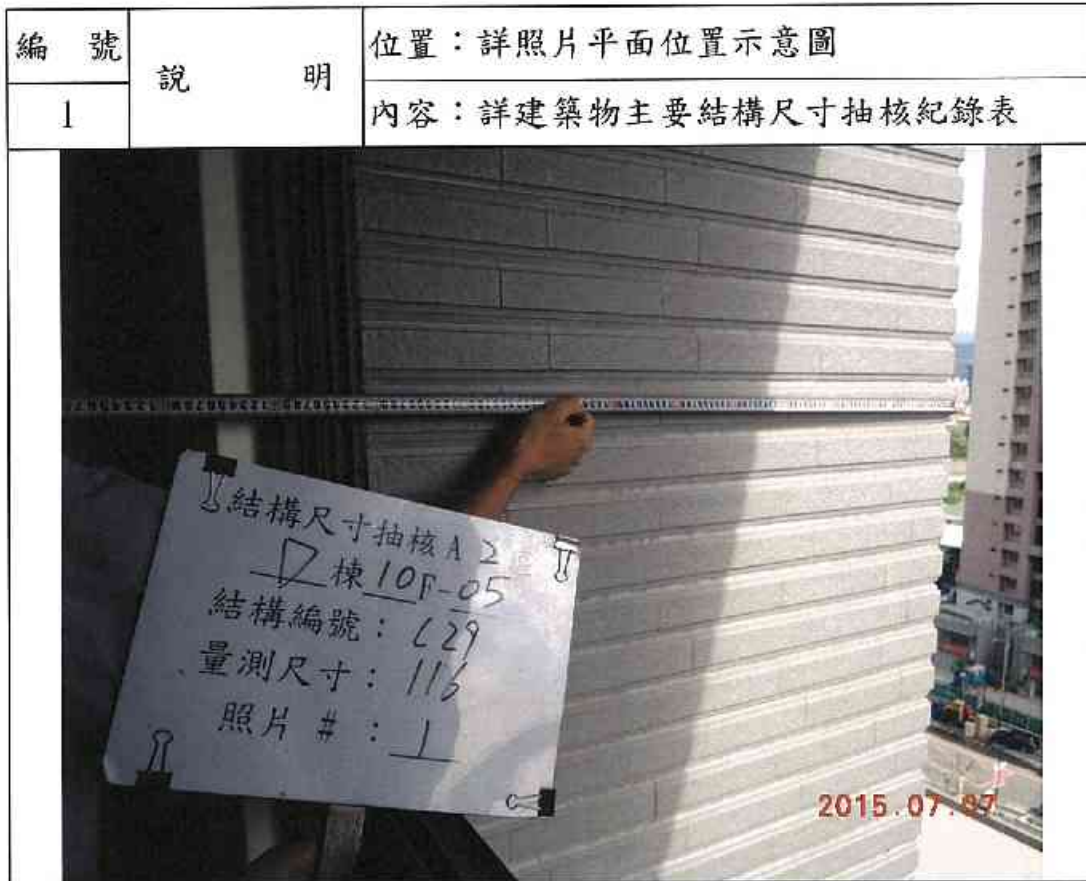 編 號
說 明
位置：詳照片平面位置示意圖
1
內容：詳建築物主要結構尺寸抽核紀錄表
結構尺寸抽核A 2
D棟10F-05
結構編號：C29
量測尺寸：116
照片 #：1
2015.07.07